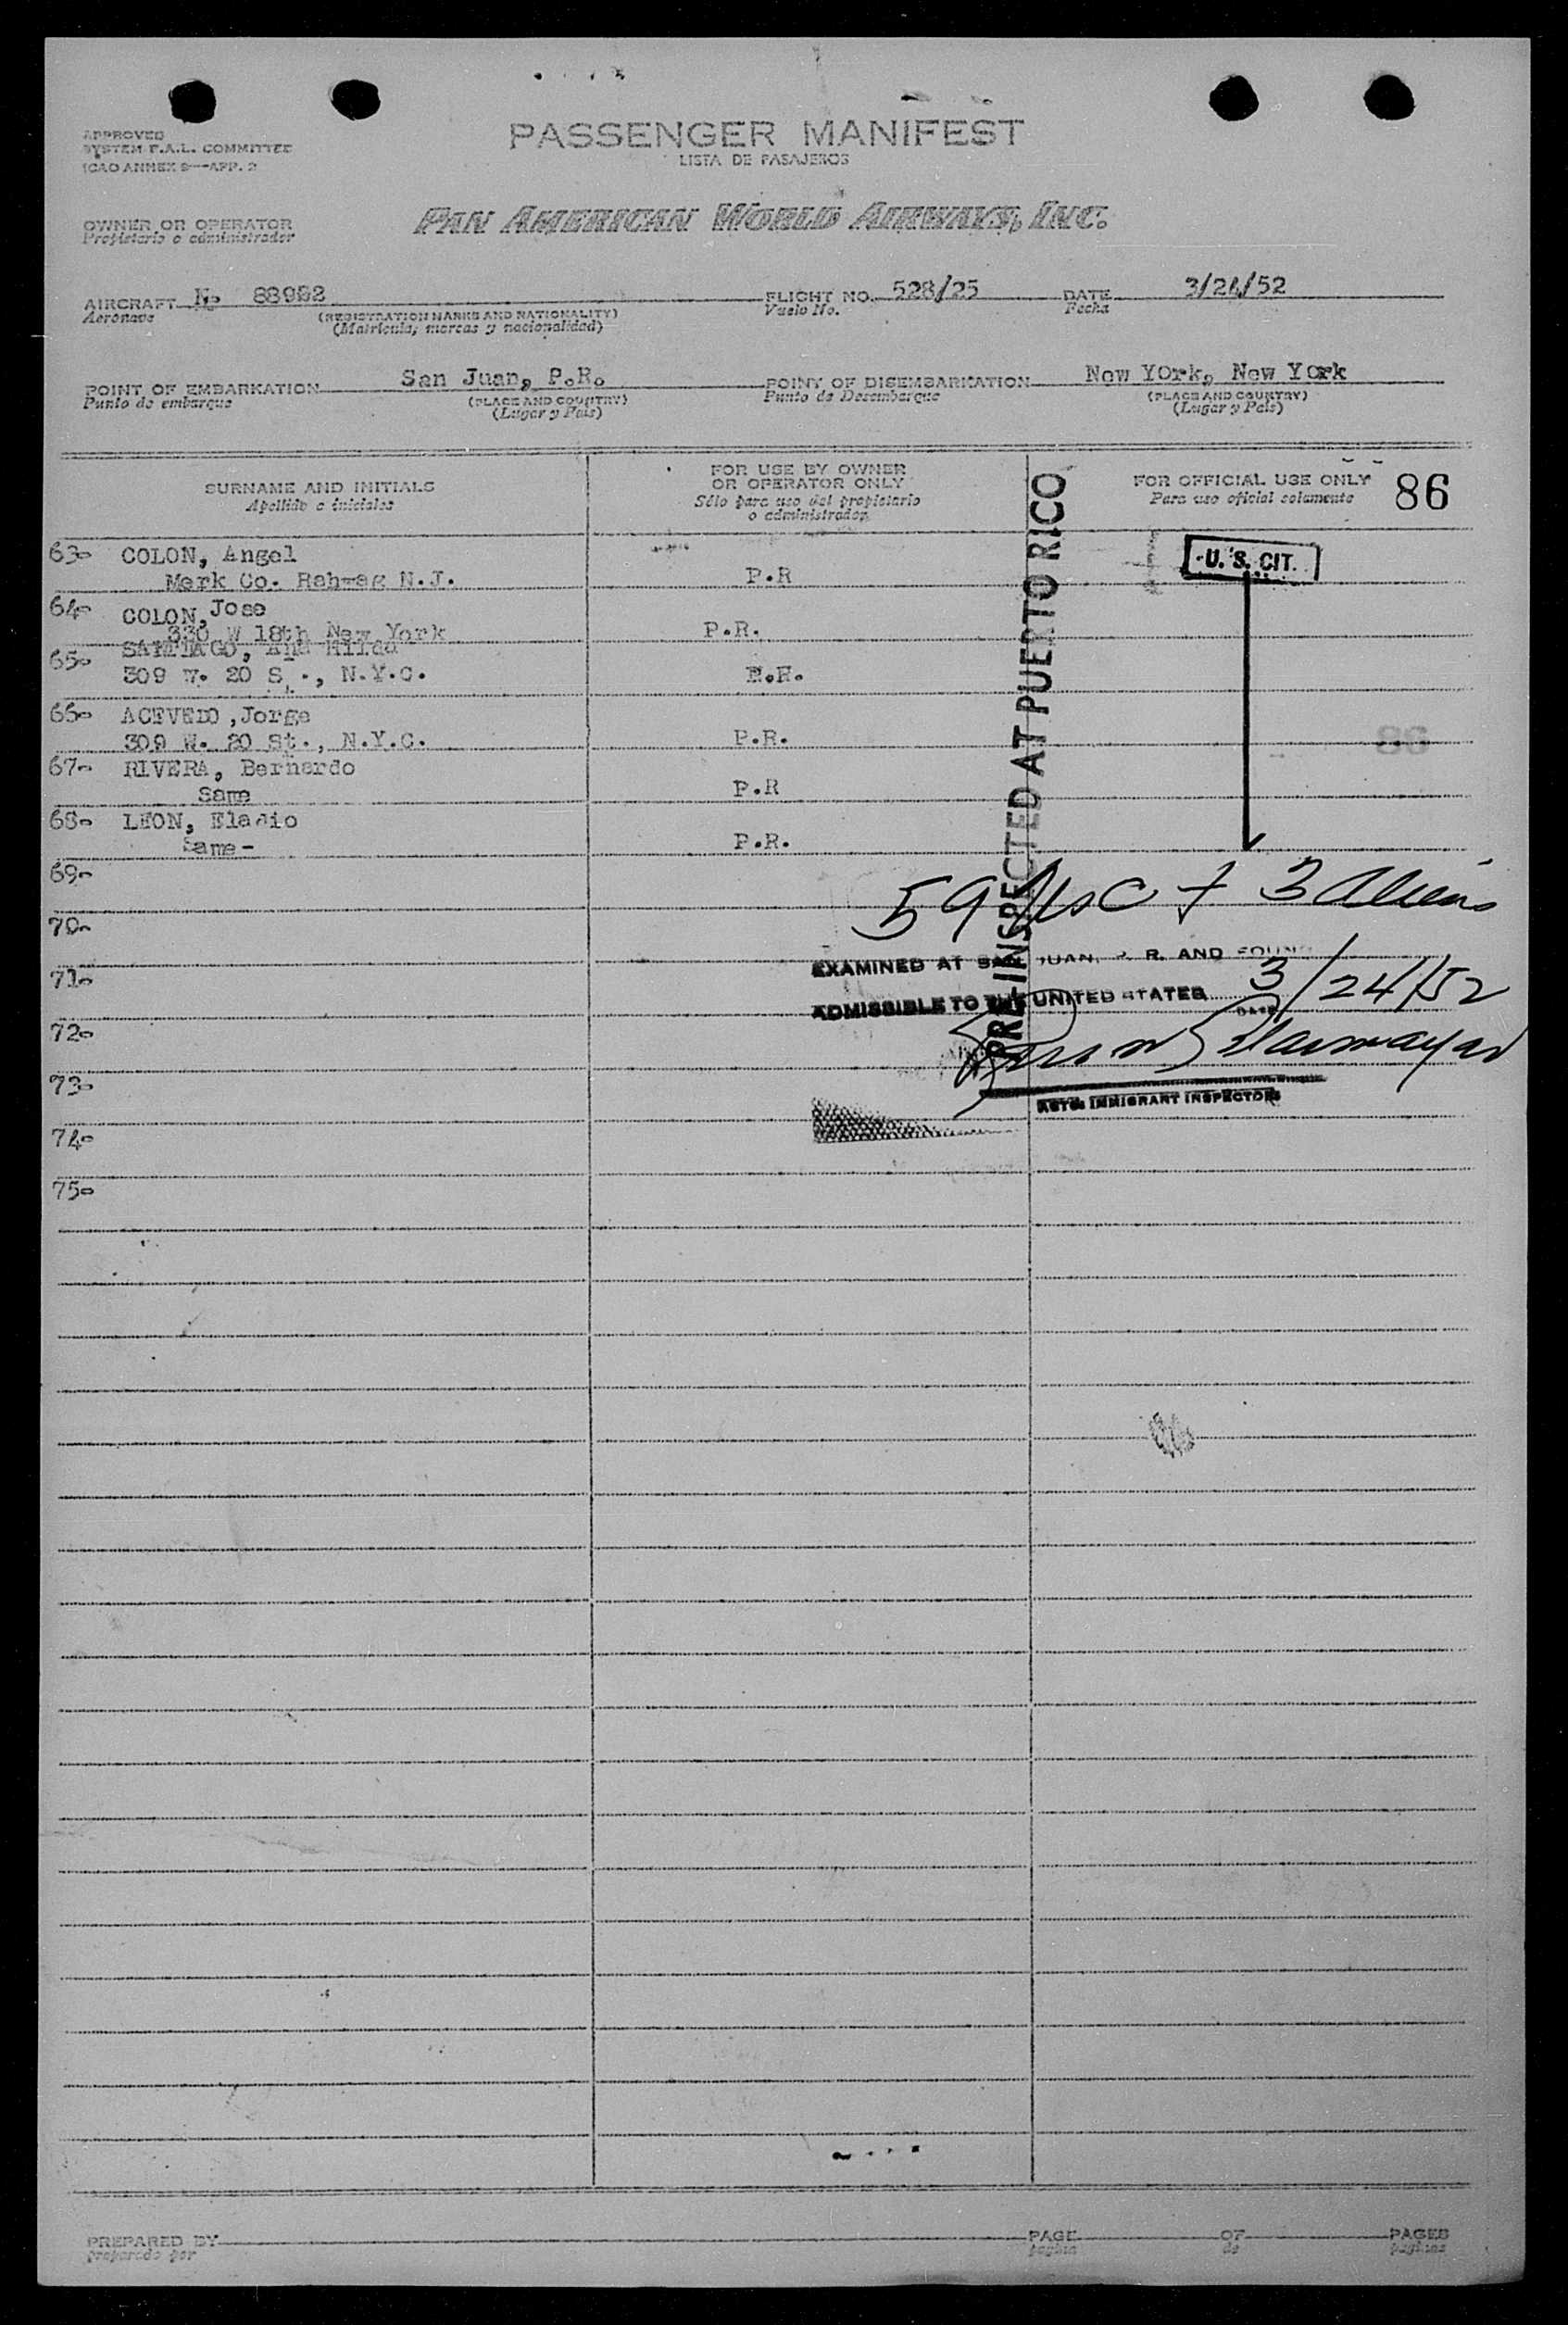 APPROVED
SYSTEM F.A.L. COMMITTEE
ICAO ANNEX 9—APP. 2
PASSENGER MANIFEST
LISTA DE PASAJEROS
OWNER OR OPERATOR
Propietario o administrador
PAN AMERICAN WORLD AIRWAYS, INC.
AIRCRAFT No
Aeronave
(REGISTRATION MARKS AND NATIONALITY)
(Matricula, marcas y nacionalidad)
FLIGHT NO. 528/25
Vuelo No.
DATE 3/24/52
Fecha
POINT OF EMBARKATION San Juan, P.R.
Punto de embarque
(PLACE AND COUNTRY)
(Lugar y Pais)
POINT OF DISEMBARKATION New York, New York
Punto de Desembarque
(PLACE AND COUNTRY)
(Lugar y Pais)
SURNAME AND INITIALS
Apellido e iniciales
FOR USE BY OWNER
OR OPERATOR ONLY
Sólo para uso del propietario
o administrador
FOR OFFICIAL USE ONLY
Para uso oficial solamente
86
63- COLON, Angel
Merk Co. N.J. P.R
U. S. CIT.
64- COLON, Jose
330 W 18th New York P.R.
65- SANTIAGO, Ana Hilda
309 W. 20 St., N.Y.C. P.R.
66- ACEVEDO, Jorge
309 W. 20 St., N.Y.C. P.R.
86
67- RIVERA, Bernardo
Same P.R
68- LEON, Eladio
Same- P.R.
69-
70-
71-
72-
73-
74-
75-
PRE-INSPECTED AT PUERTO RICO
59 USC + 3 Aliens
EXAMINED AT SAN JUAN, P. R. AND FOUND
ADMISSIBLE TO THE UNITED STATES 3/24/52
DATE
ACTG. IMMIGRANT INSPECTOR
PREPARED BY
preparado por
PAGE
pagina
OF
de
PAGES
paginas